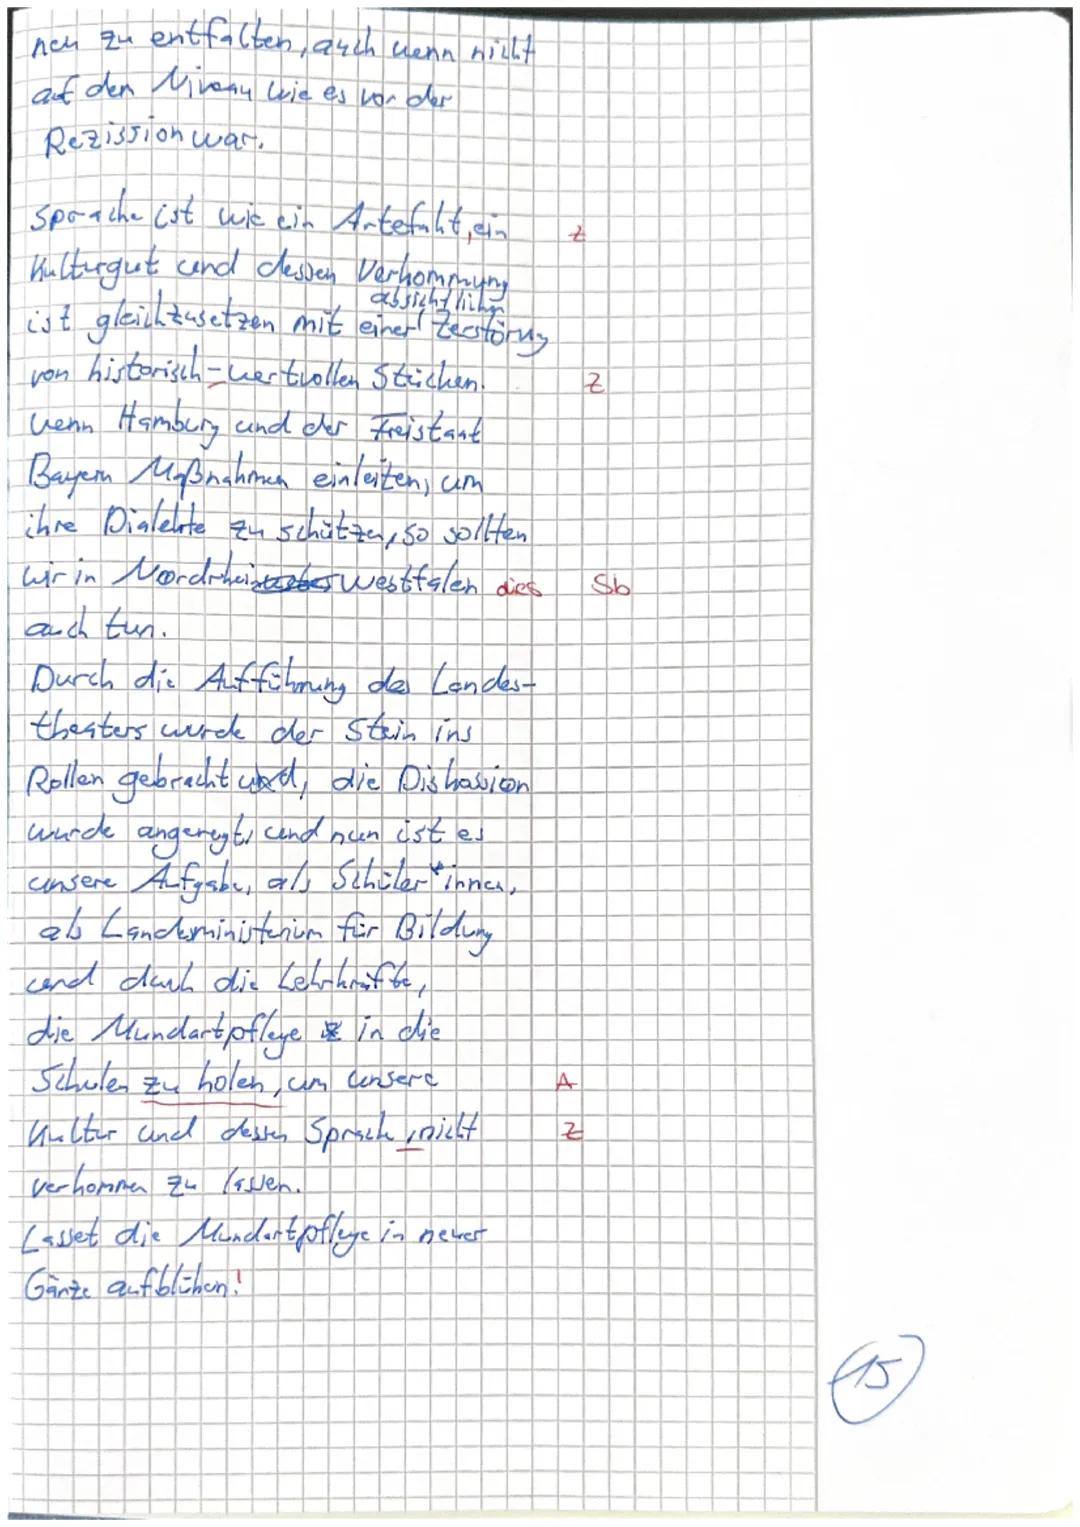 neu zu entfalten, auch wenn nicht
auf den Niveau wie es vor der
Rezission war.
Sprache ist wie ein Artefakt, ein Z
Kulturgut und dessen Verkommung
absichtlichen
ist gleichzusetzen mit einer Zerstörung
von historisch-wertvollen Stücken. Z
Wenn Hamburg und der Freistaat
Bayern Maßnahmen einleiten, um
ihre Dialekte zu schützen, so sollten
wir in Nordrhein westfalen dies Sb
auch tun.
Durch die Aufführung des Landes-
theaters wurde der Stein ins
Rollen gebracht und, die Diskussion
wurde angeregt, und nun ist es
unsere Aufgabe, als Schüler*innen,
als Landesministerium für Bildung
und durch die Lehrkräfte,
die Mundartpflege in die
Schulen zu holen, um unsere A
Kultur und dessen Sprach, nicht Z
verkommen zu lassen.
Lasset die Mundartpflege in neuer
Gänze aufblühen!
15